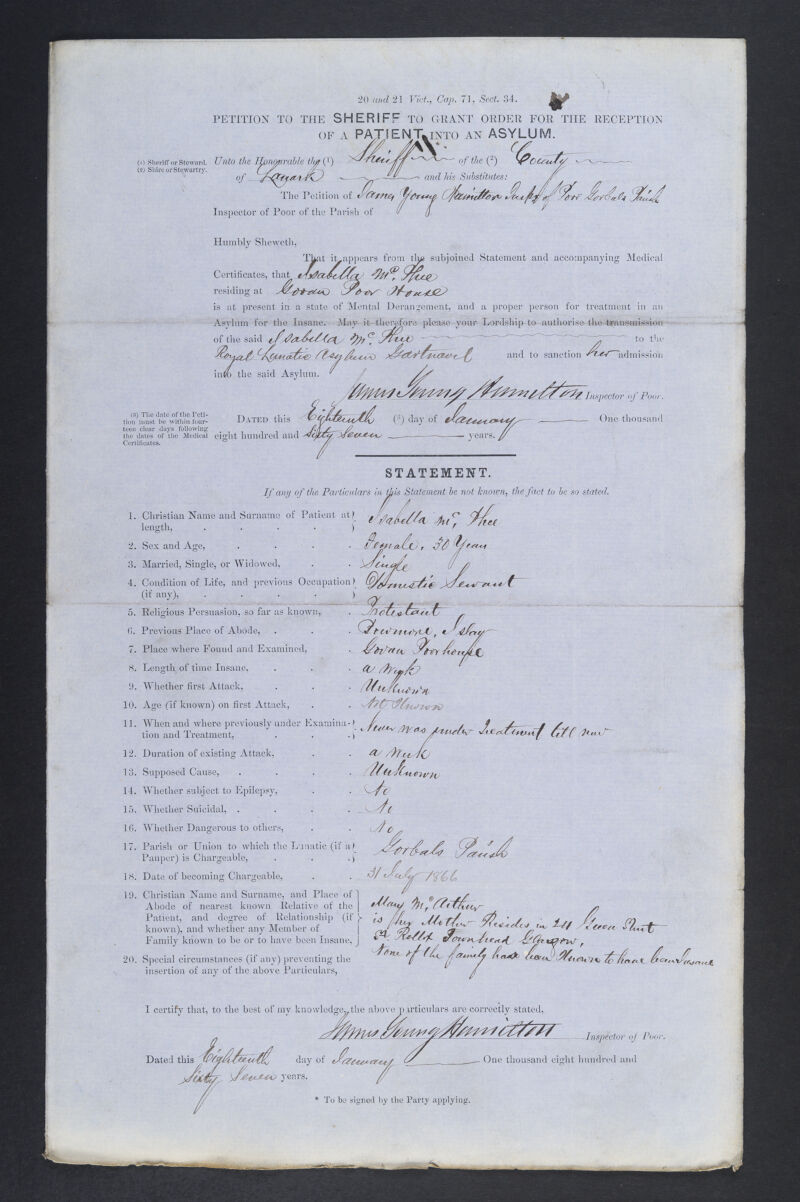 20 and 21 Vict., Cap. 71, Sect. 34.
PETITION TO THE SHERIFF TO GRANT ORDER FOR THE RECEPTION
OF A PATIENT INTO AN ASYLUM.
(1) Sheriff or Steward.
(2) Shire or Stewartry.
Unto the Honourable the (1) Sheriff of the (2) County
of Lanark and his Substitutes:
The Petition of James Young Hamilton Inspr of Poor Gorbals Parish
Inspector of Poor of the Parish of
Humbly Sheweth,
That it appears from the subjoined Statement and accompanying Medical
Certificates, that Isabella Mc. Phee
residing at Govan Poor House
is at present in a state of Mental Derangement, and a proper person for treatment in an
Asylum for the Insane. May it therefore please your Lordship to authorise the transmission
of the said Isabella Mc. Phee to the
Royal Lunatic Asylum Gartnavel and to sanction her admission
into the said Asylum.
James Young Hamilton Inspector of Poor.
(3) The date of the Peti-
tion must be within four-
teen clear days following
the dates of the Medical
Certificates.
DATED this Eighteenth (3) day of January One thousand
eight hundred and Sixty Seven years.
STATEMENT.
If any of the Particulars in this Statement be not known, the fact to be so stated.
1. Christian Name and Surname of Patient at
length, Isabella Mc. Phee
2. Sex and Age, Female, 30 Years
3. Married, Single, or Widowed, Single
4. Condition of Life, and previous Occupation
(if any), Domestic Servant
5. Religious Persuasion, so far as known, Protestant
6. Previous Place of Abode, Bowmore, Islay
7. Place where Found and Examined, Govan Poorhouse
8. Length of time Insane, a week
9. Whether first Attack, Unknown
10. Age (if known) on first Attack, Not Known
11. When and where previously under Examina-
tion and Treatment, Never was under Treatment till now
12. Duration of existing Attack, a week
13. Supposed Cause, Unknown
14. Whether subject to Epilepsy, No
15. Whether Suicidal, No
16. Whether Dangerous to others, No
17. Parish or Union to which the Lunatic (if a
Pauper) is Chargeable, Gorbals Parish
18. Date of becoming Chargeable, 31 July 1866
19. Christian Name and Surname, and Place of
Abode of nearest known Relative of the
Patient, and degree of Relationship (if
known), and whether any Member of
Family known to be or to have been Insane,
Mary Mc. Arthur
is her Mother Resides in Street
St Rollox Townhead Glasgow,
None of the family have been Known to have been Insane
20. Special circumstances (if any) preventing the
insertion of any of the above Particulars,
I certify that, to the best of my knowledge, the above particulars are correctly stated,
James Young Hamilton Inspector of Poor.
Dated this Eighteenth day of January One thousand eight hundred and
Sixty Seven years.
* To be signed by the Party applying.